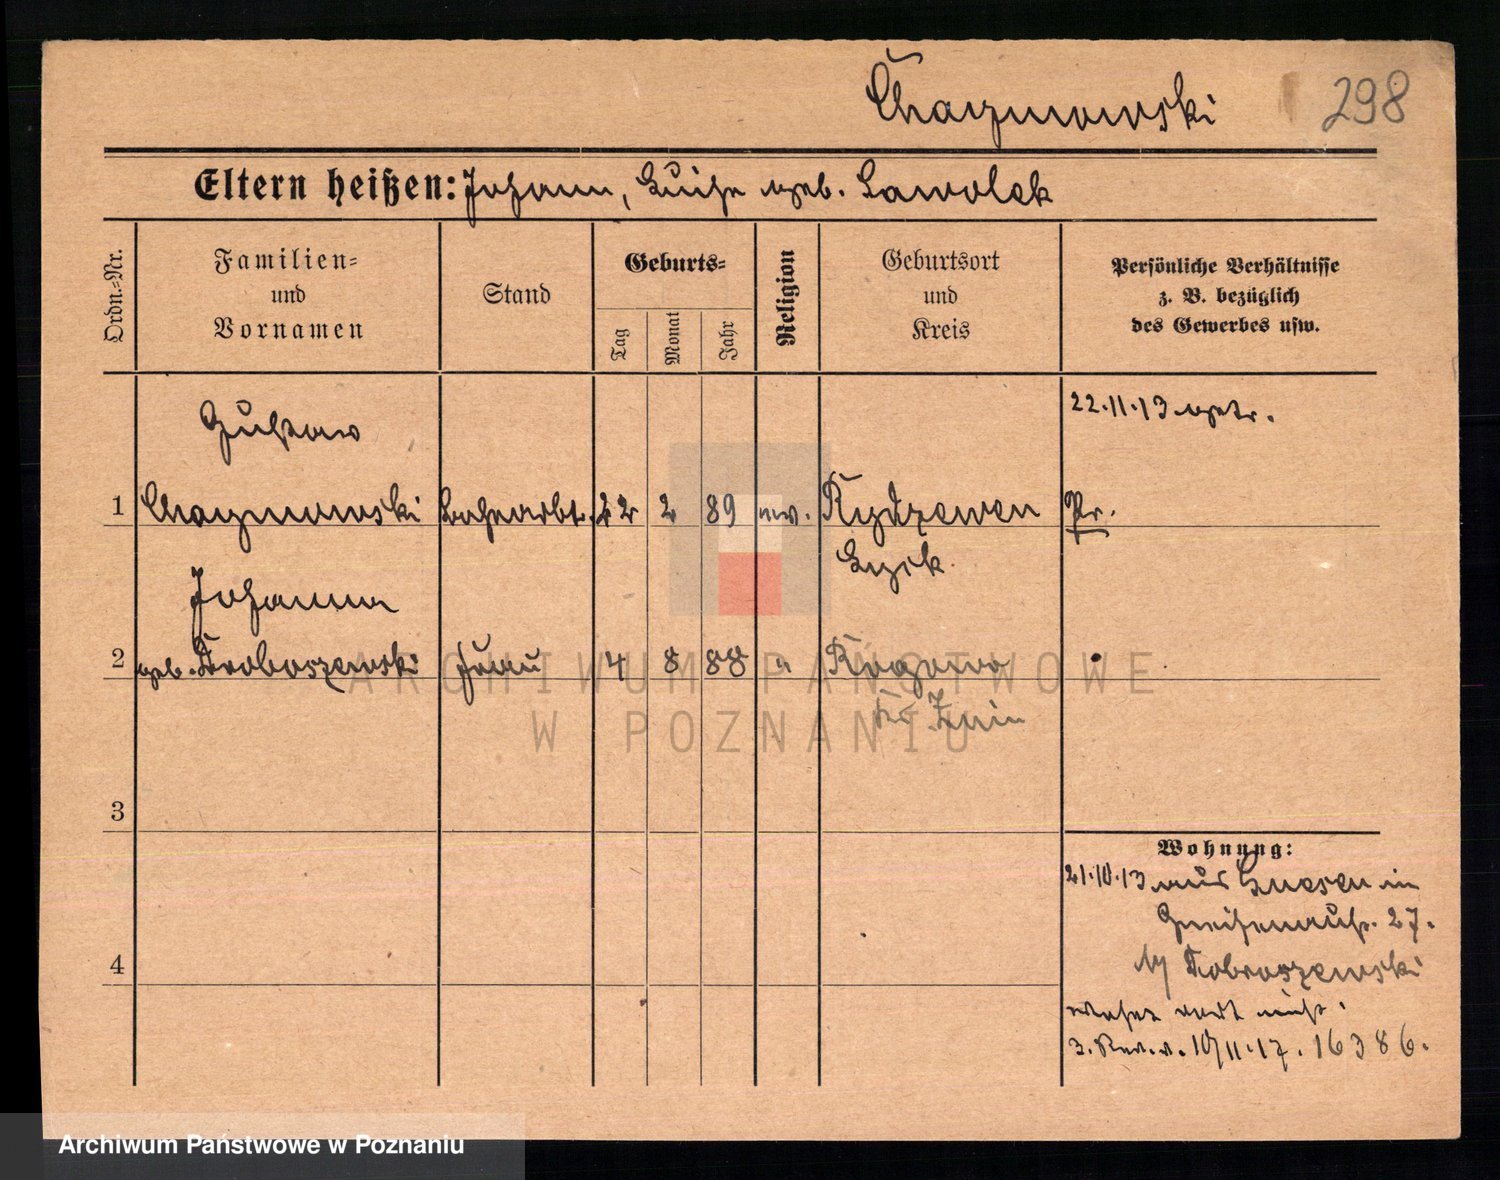 Chaymowski 298
Eltern heißen: Johann, Luise geb. Sawolek
Ordn.=Nr.
Familien=
und
Vornamen
Stand
Geburts=
Tag
Monat
Jahr
Religion
Geburtsort
und
Kreis
Persönliche Verhältnisse
z. B. bezüglich
des Gewerbes usw.
Gustav
22.11.13 getr.
1 Chaymowski 22 2 89 ev. Rydzewen
Pr.
Lyck
Johanna
2 geb. Doboszewski Frau 4 8 88 " Rogowo
Kr. Znin
3
4
Wohnung:
21.10.13 aus Gnesen in
Gneisenaustr. 27.
b/ Dobroszewski
wohnt dort nicht.
10/11.17. 16386.
ARCHIWUM PAŃSTWOWE
W POZNANIU
Archiwum Państwowe w Poznaniu